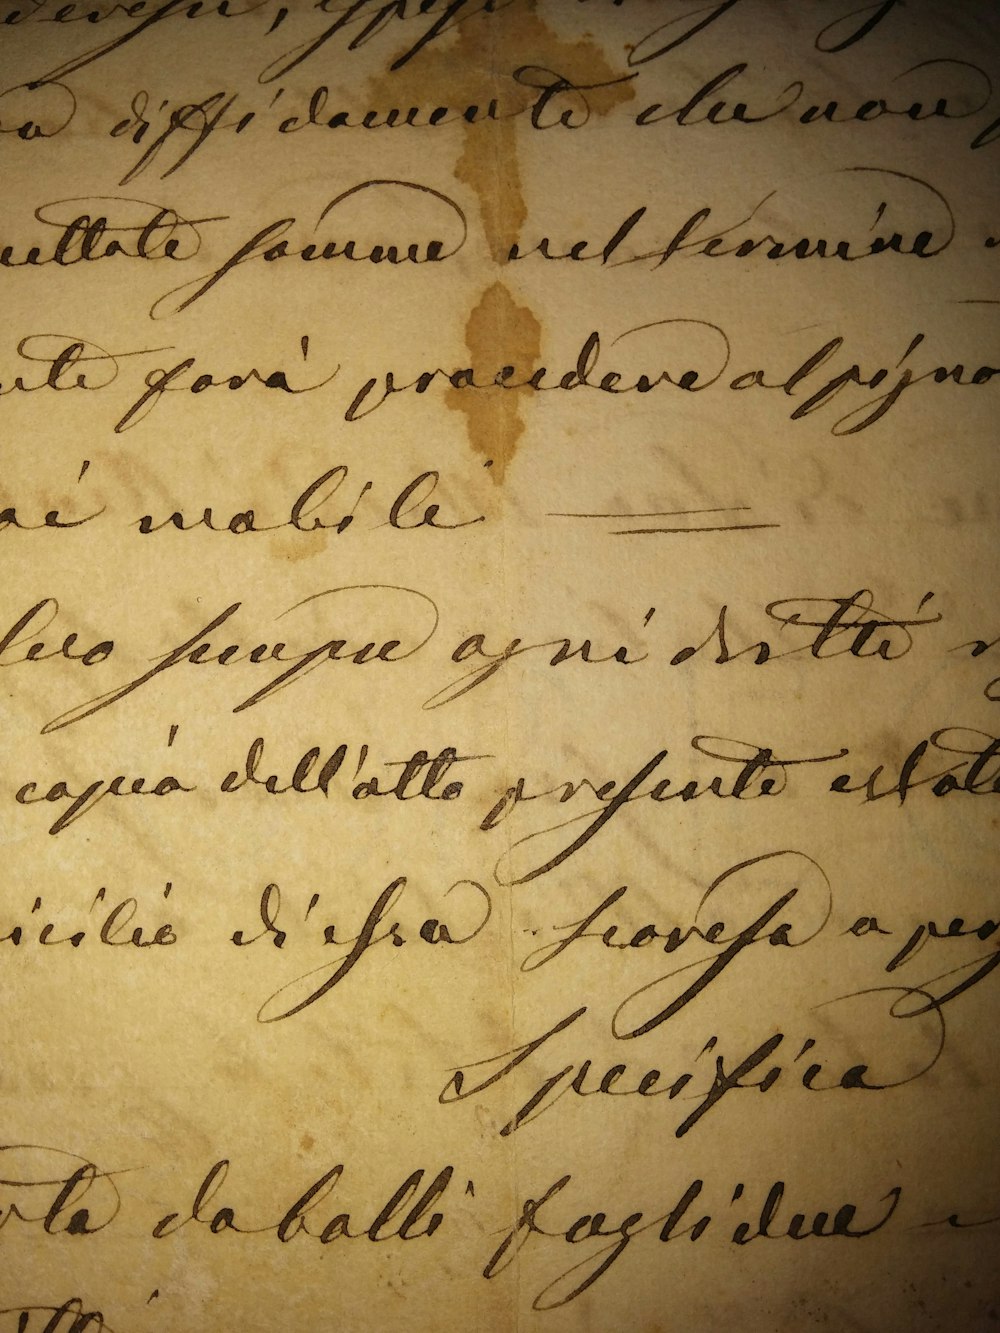 a diffidamente che non
uettate somme nel termine
nte farà procedere al pigno
ai mobili
lvo sempre ogni dritto
copia dell'atto presente è stata
icilio di essa scoressa a per
Specifica
rta da bolli fogli due